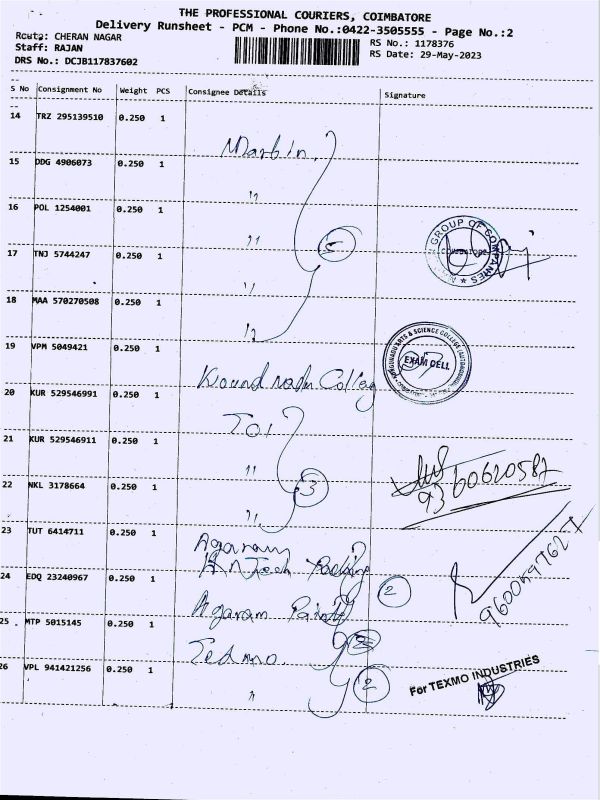 THE PROFESSIONAL COURIERS, COIMBATORE
Delivery Runsheet - PCM - Phone No.:0422-3505555 - Page No.:2
Route: CHERAN NAGAR
RS No.: 1178376
Staff: RAJAN
RS Date: 29-May-2023
DRS No.: DCJB117837602
S No Consignment No Weight PCS Consignee Details Signature
14 TRZ 295139510 0.250 1
Martin.
15 DDG 4906073 0.250 1
"
16 POL 1254001 0.250 1
"
5
GROUP OF COMPANIES
COIMBATORE
17 TNJ 5744247 0.250 1
"
18 MAA 570270508 0.250 1
"
19 VPM 5049421 0.250 1
ARTS & SCIENCE COLLEGE
EXAM CELL
20 KUR 529546991 0.250 1
21 KUR 529546911 0.250 1
"
22 NKL 3178664 0.250 1
3
"
23 TUT 6414711 0.250 1
Agaram
24 EDQ 23240967 0.250 1
2
Agaram
25 MTP 5015145 0.250 1
26 VPL 941421256 0.250 1
"
2
For TEXMO INDUSTRIES